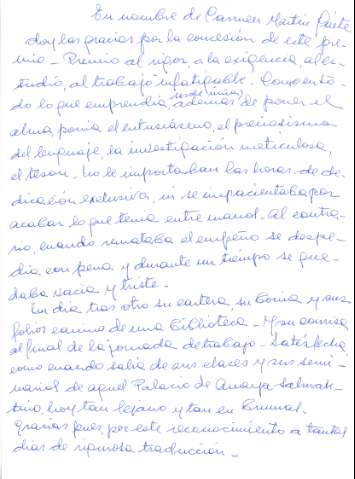 En nombre de Carmen Martín Gaite
doy las gracias por la concesión de este pre-
mio - Premio al rigor, a la exigencia, al es-
tudio, al trabajo infatigable. Como en to-
do lo que emprendía, además de poner el
alma, ponía el entusiasmo, el preciosismo
del lenguaje, la investigación meticulosa,
el tesón. No le importaban las horas de de-
dicación exclusiva, ni se impacientaba por
acabar lo que tenía entre manos. Al contra-
rio, cuando remataba el empeño se despe-
día con pena y durante un tiempo se que-
daba vacía y triste.
Un día tras otro su cartera, su boina y sus
folios camino de una Biblioteca - Y su sonrisa
al final de la jornada de trabajo - Satisfecha
como cuando salía de sus clases y sus semi-
narios de aquel Palacio de Anaya Salman-
tino, hoy tan lejano y tan
Gracias pues, por este reconocimiento a tantos
días de rigurosa traducción -